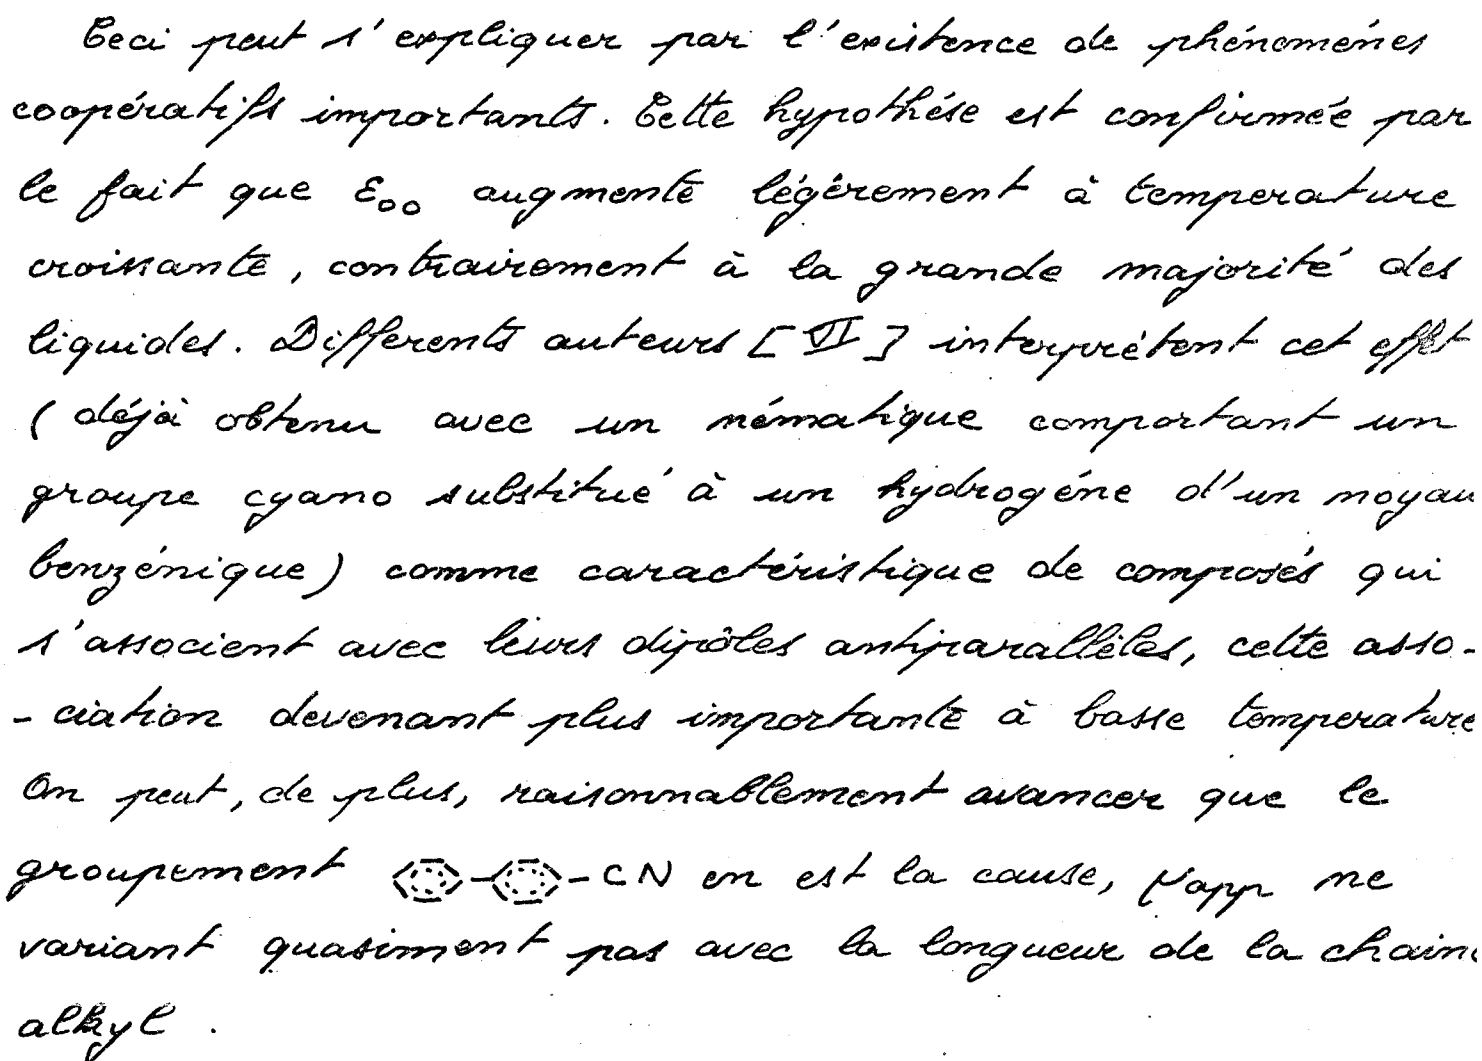 Ceci peut s'expliquer par l'existence de phénoménes
coopératifs importants. Cette hypothése est confirmée par
le fait que ε₀₀ augmente légérement à temperature
croissante, contrairement à la grande majorité des
liquides. Differents auteurs [VI] interprétent cet effet
(déjà obtenu avec un nématique comportant un
groupe cyano substitué à un hydrogéne d'un noyau
benzénique) comme caractéristique de composés qui
s'associent avec leurs dipôles antiparalléles, cette asso-
-ciation devenant plus importante à basse temperature
On peut, de plus, raisonnablement avancer que le
groupement -CN en est la cause, μapp ne
variant quasiment pas avec la longueur de la chaine
alkyl.